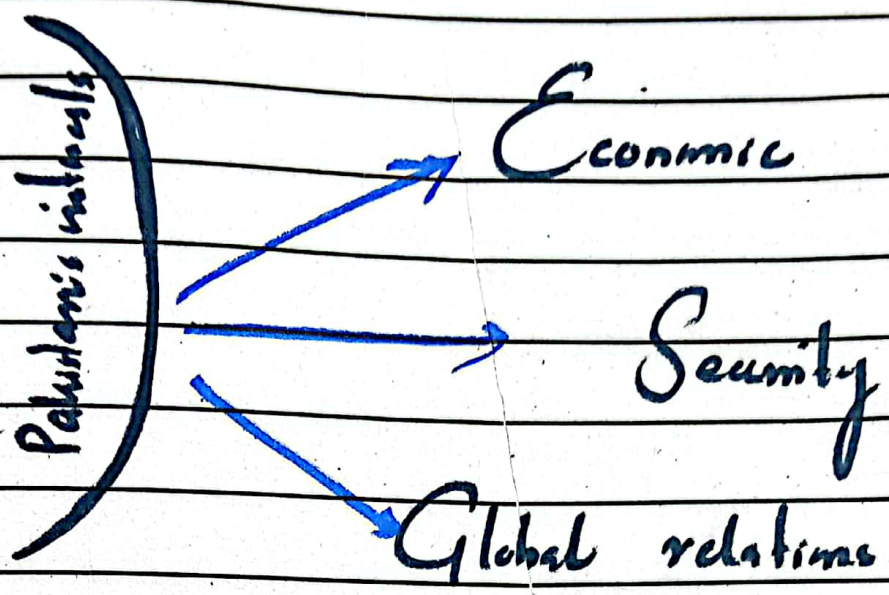 Pakistan's interests
Economic
Security
Global relations